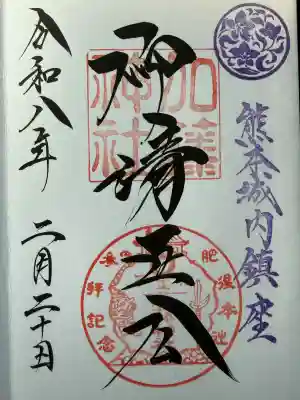 熊本城内鎮座
加藤神社
清正公
肥後本社
参拝記念
令和八年 二月二十日